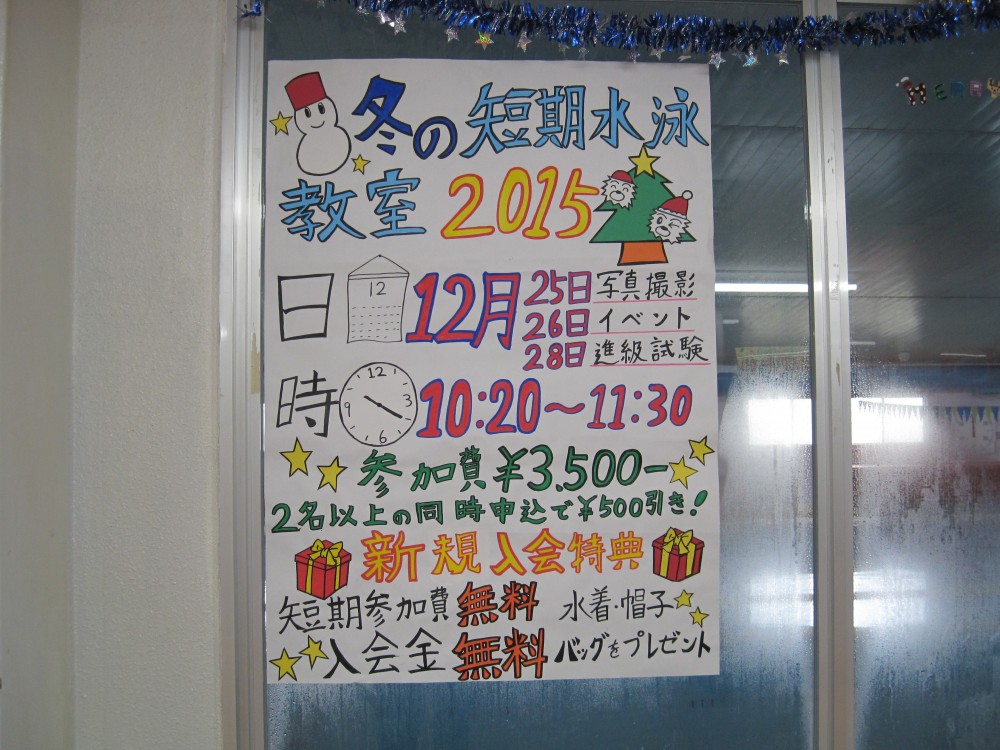 冬の短期水泳
教室2015
日 12 12月 25日 写真撮影
26日 イベント
28日 進級試験
時 12 3 6 9 10:20～11:30
参加費¥3,500-
2名以上の同時申込で¥500引き!
新規入会特典
短期参加費無料 水着・帽子
入会金無料 バッグをプレゼント
MERRY